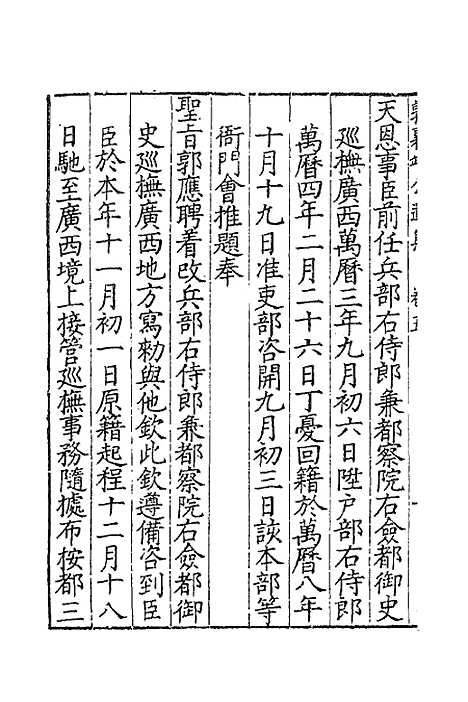 天恩事臣前任兵部右侍郎兼都察院右僉都御史
巡撫廣西萬曆三年九月初六日陞户部右侍郎
萬曆四年二月二十六日丁憂回籍於萬曆八年
十月十九日准吏部咨開九月初三日該本部等
衙門會推題奉
聖旨郭應聘着改兵部右侍郎兼都察院右僉都御
史巡撫廣西地方寫勑與他欽此欽遵備咨到臣
臣於本年十一月初一日原籍起程十二月十八
日馳至廣西境上接管巡撫事務隨據布按都三